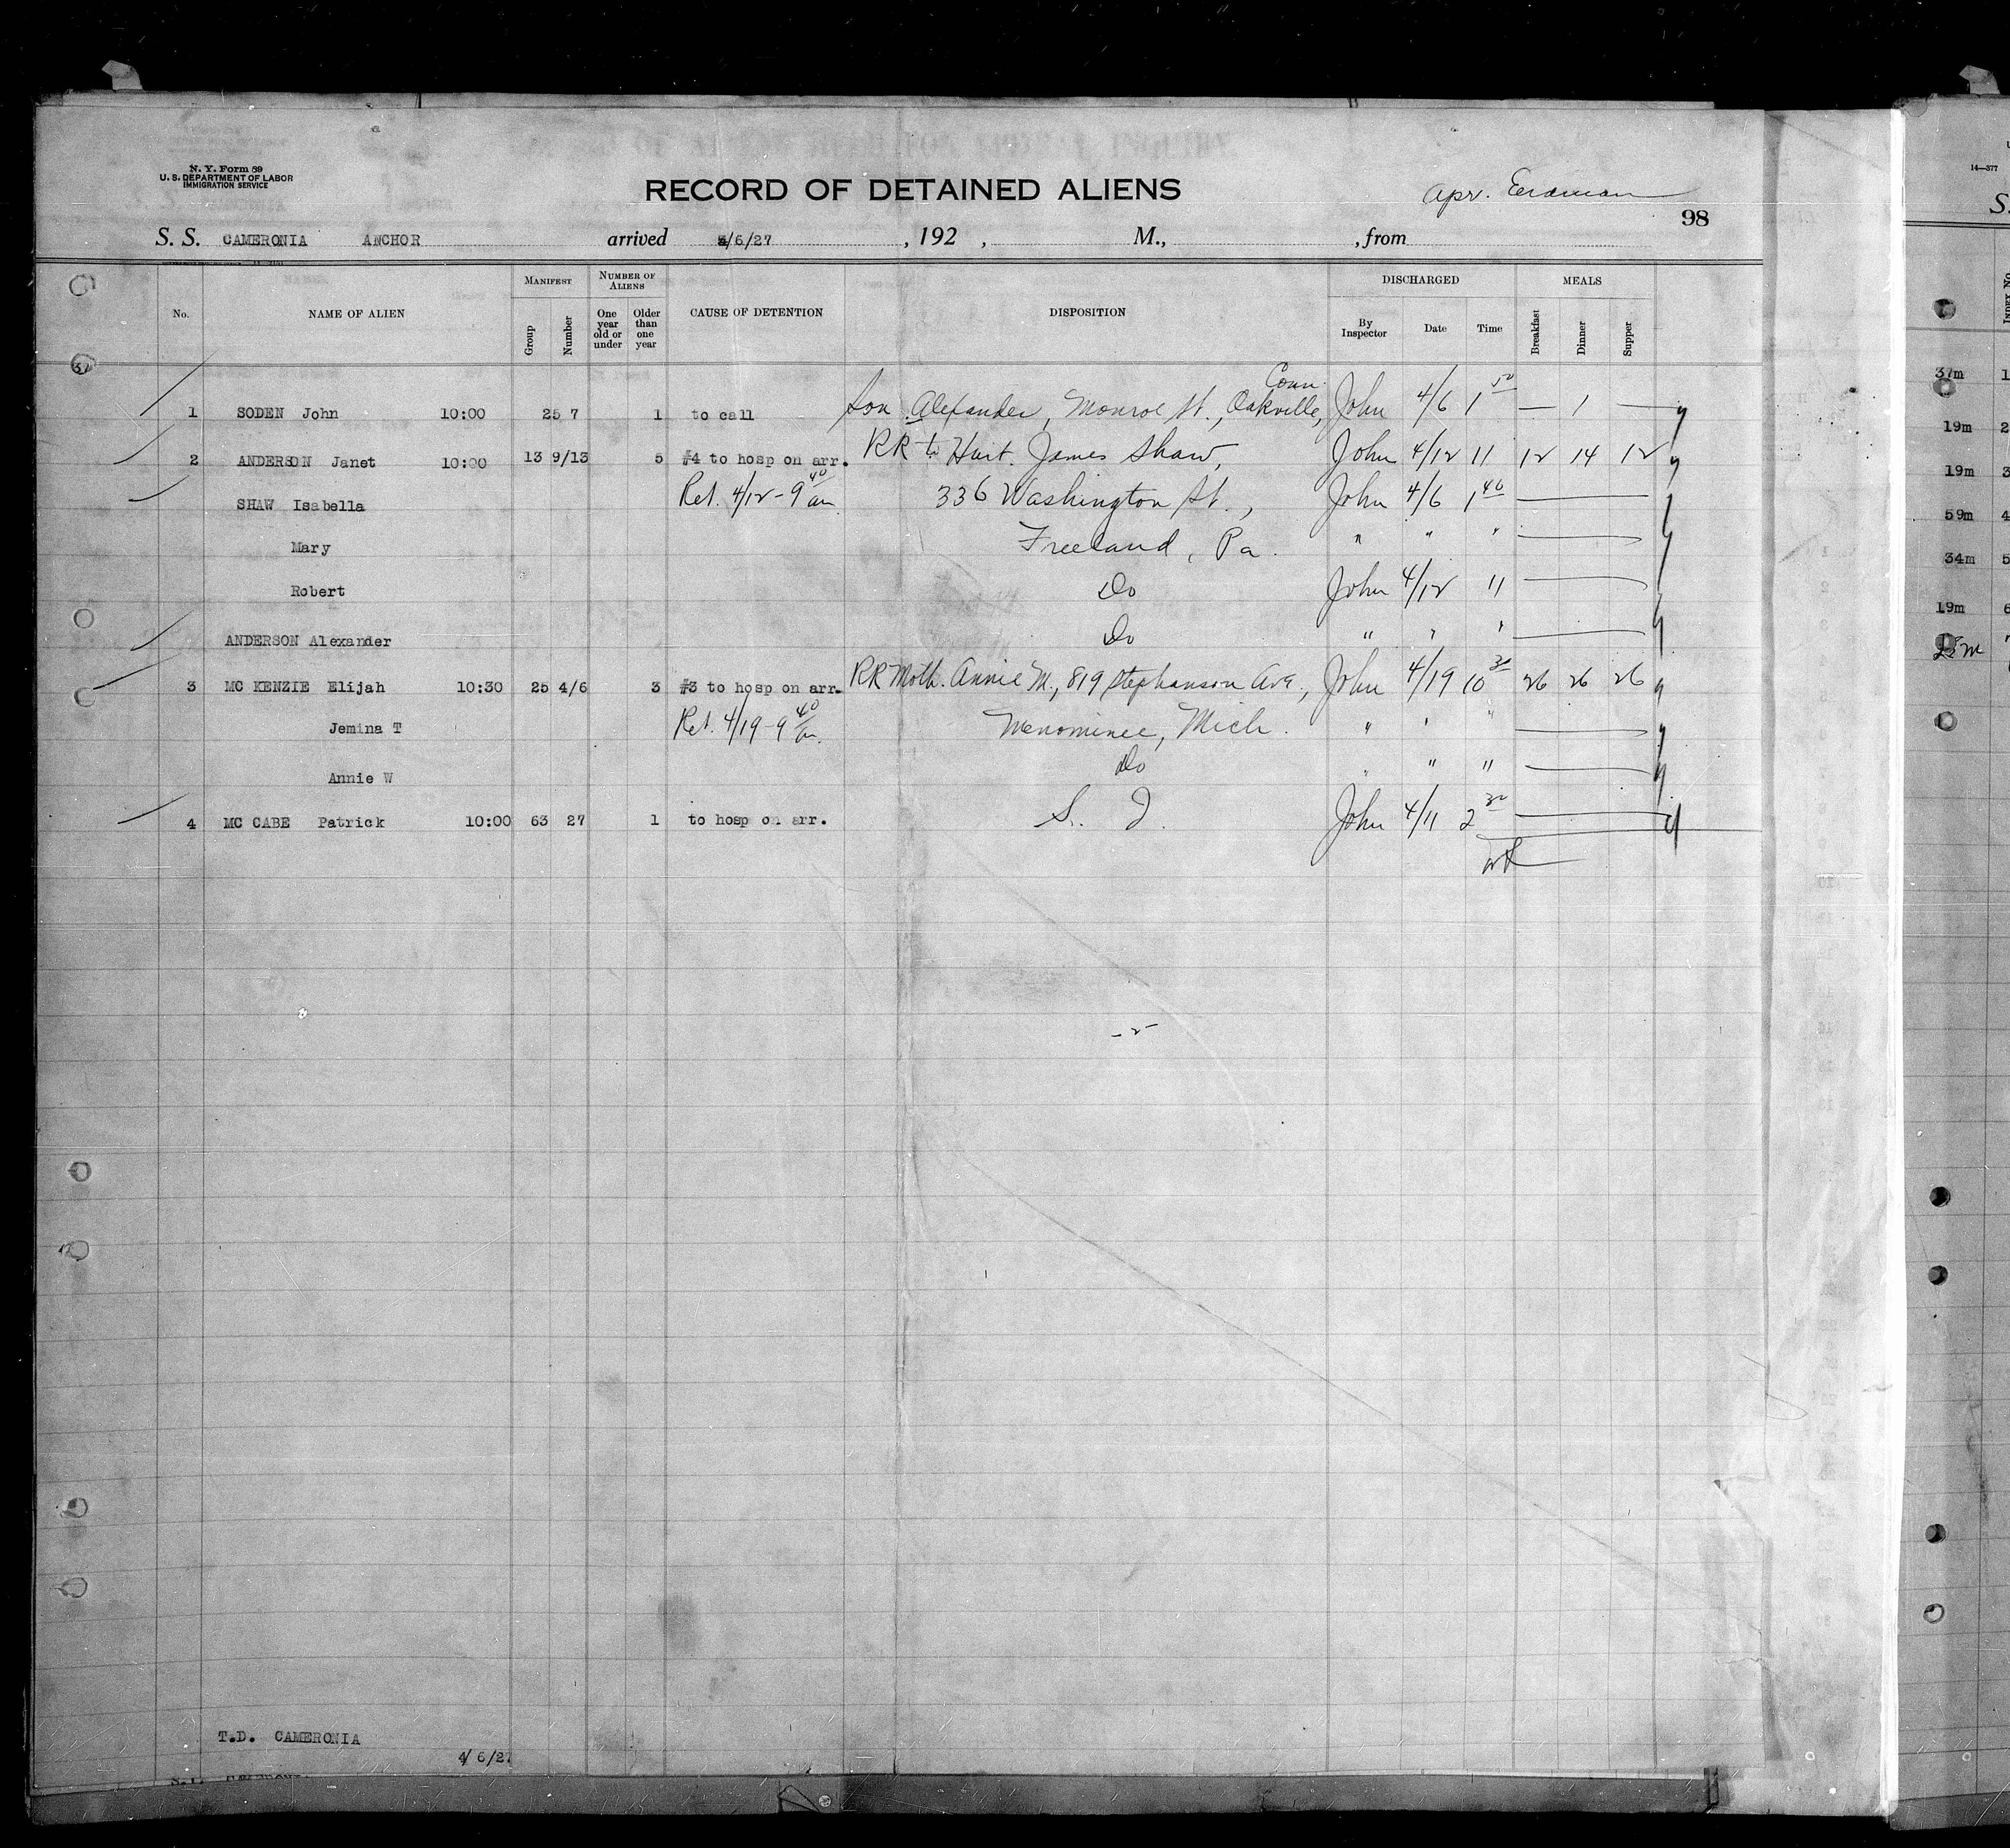 N. Y. Form 89
U. S. DEPARTMENT OF LABOR
IMMIGRATION SERVICE
RECORD OF DETAINED ALIENS
Apr.
98
S. S. CAMERONIA ANCHOR arrived 4/6/27 , 192 , M., , from
No. NAME OF ALIEN MANIFEST Group Number NUMBER OF ALIENS One year old or under Older than one year CAUSE OF DETENTION DISPOSITION DISCHARGED By Inspector Date Time MEALS Breakfast Dinner Supper
Conn.
1 SODEN John 10:00 25 7 1 to call Son Alexander, Monroe St., Oakville, John 4/6 1 50 — 1 —
2 ANDERSON Janet 10:00 13 9/13 5 #4 to hosp on arr. RR to Husb. James Shaw, John 4/12 11 12 14 12
SHAW Isabella Ret. 4/12 - 9 40 am 336 Washington St., John 4/6 1 40
Mary Freeland, Pa. " " "
Robert Do John 4/12 11
ANDERSON Alexander Do " " "
3 MC KENZIE Elijah 10:30 25 4/6 3 #3 to hosp on arr. RR Moth. Annie M., 819 Stephanson Ave., John 4/19 10 30 26 26 26
Jemina T Ret. 4/19 - 9 40 am. Menominee, Mich. " " "
Annie W Do " " "
4 MC CABE Patrick 10:00 63 27 1 to hosp on arr. S. I. John 4/11 2 30
- 2 -
T.D. CAMERONIA
4/6/27
14—377
S.
INDEX No
37m 1
19m 2
19m 3
59m 4
34m 5
19m 6